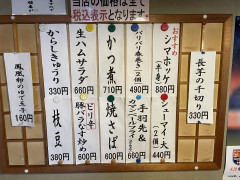 当店の価格は全て
税込表示となります。
長芋の千切り
330円
おすすめ
シマホッケ
(半身)
880円
シューマイ・大
440円
パリパリ春巻き(2個)
490円
手羽先&
490円
かつ煮
710円
焼そば
660円
生ハムサラダ
660円
ピリ辛
豚バラなす炒め
600円
からしきゅうり
330円
枝豆
380円
鳳凰卵のゆで玉子
160円